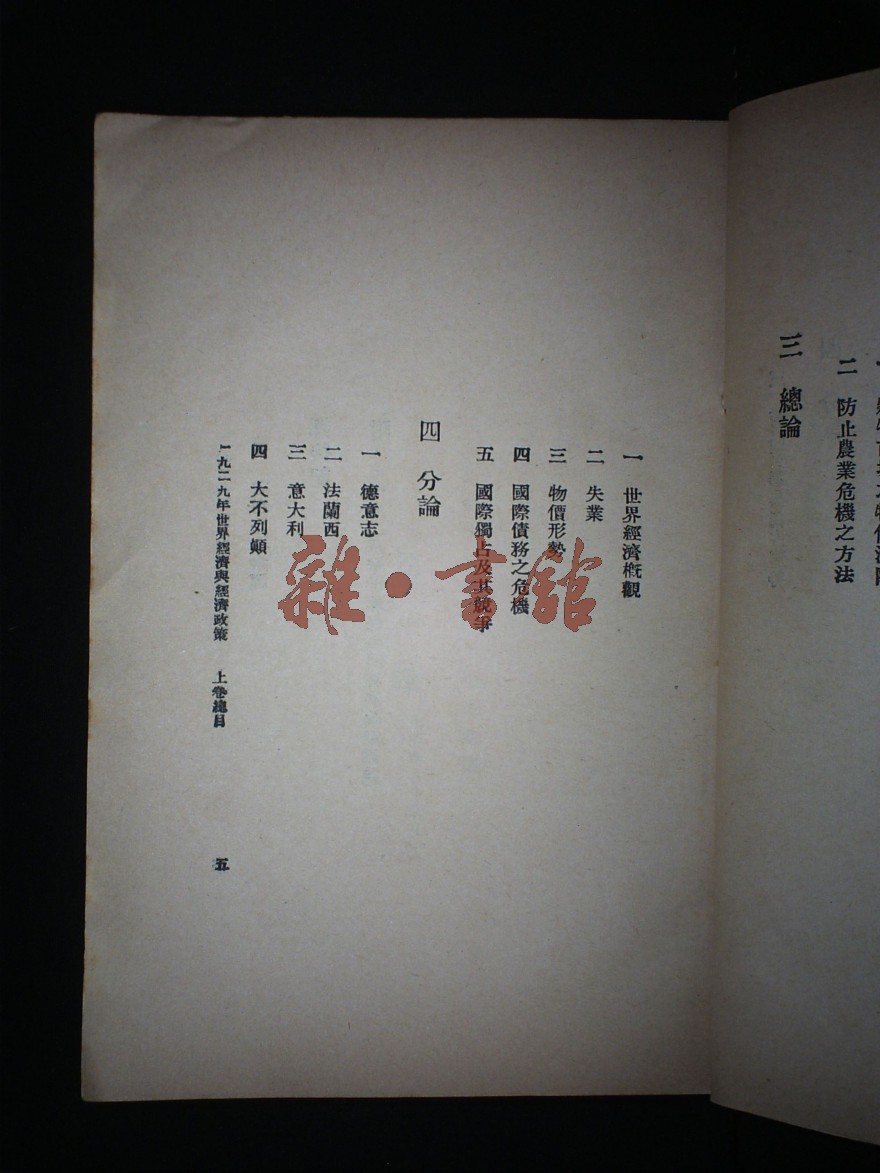 二 防止農業危機之方法
三 總論
一 世界經濟概觀
二 失業
三 物價形勢
四 國際債務之危機
五 國際獨占及其競爭
四 分論
一 德意志
二 法蘭西
三 意大利
四 大不列顛
一九二九年世界經濟與經濟政策 上卷總目
五
雜·書館